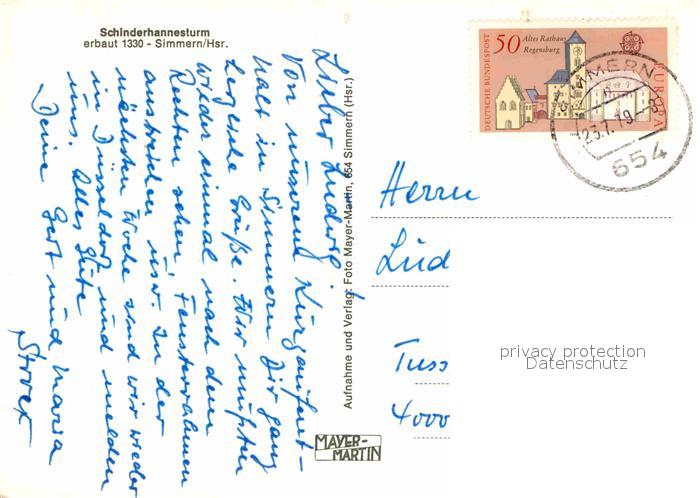 Schinderhannesturm
erbaut 1330 - Simmern/Hsr.
Lieber Ludwig!
Von unserem Kurzaufent-
halt in Simmern Dir ganz
herzliche Grüße. Wir mußten
wieder einmal nach dem
Rechten sehen, Fensterrahmen
anstreichen usw. In der
nächsten Woche sind wir wieder
in Düsseldorf und melden
uns. Alles Gute
Deine Gert und Maria
Aufnahme und Verlag: Foto Mayer-Martin, 654 Simmern (Hsr.)
MAYER-
MARTIN
DEUTSCHE BUNDESPOST
50
Altes Rathaus
Regensburg
EUROPA
SIMMERN
23.7.79-8
654
Herrn
Lud
Tuss
4000
privacy protection
Datenschutz